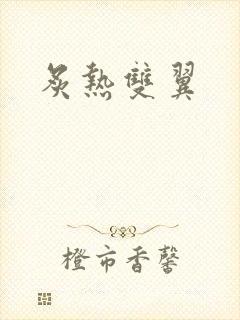 炙熱雙翼
橙市香馨